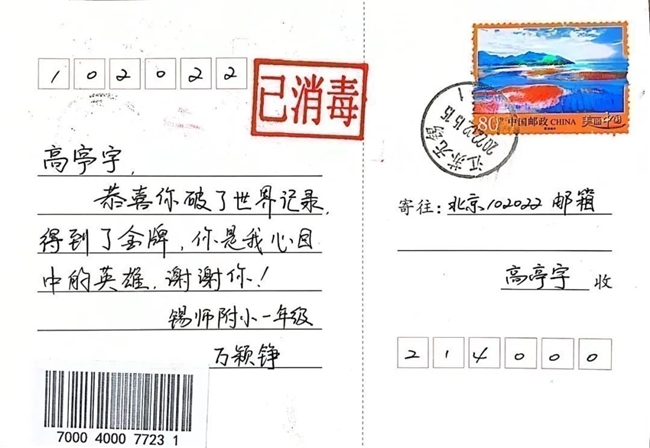 102022
已消毒
高亭宇，
恭喜你破了世界记录，
得到了金牌，你是我心目
中的英雄，谢谢你！
锡师附小一年级
万颖铮
7000 4000 7723 1
80分 中国邮政 CHINA 美丽中国
江苏无锡
2022.02.15.15
寄往：北京102022邮箱
高亭宇 收
214000